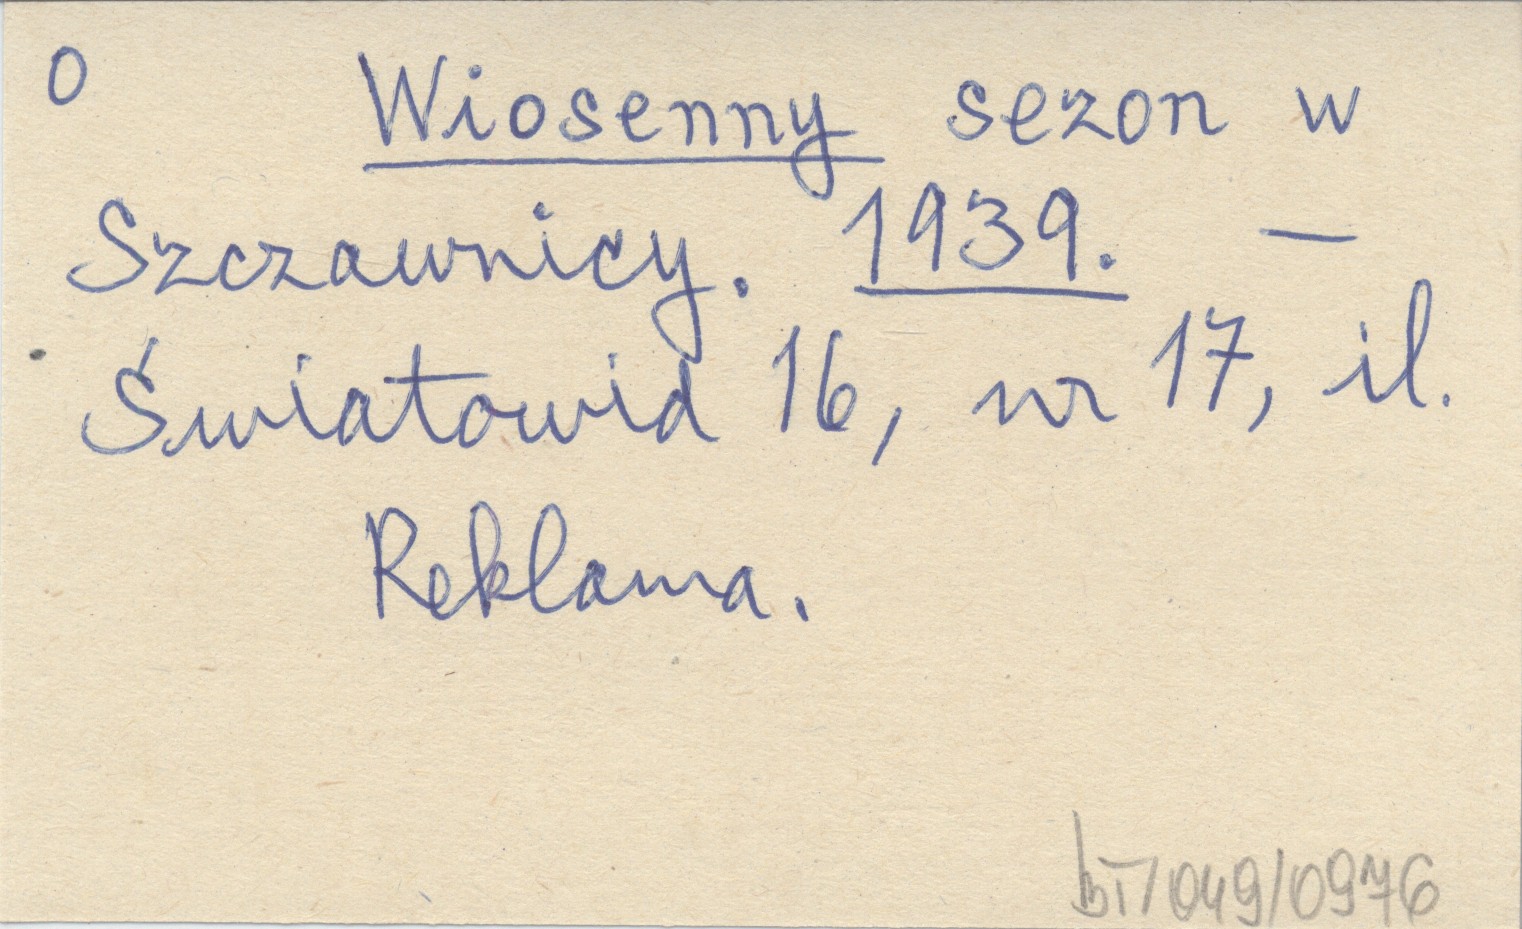 O Wiosenny sezon w
Szczawnicy. 1939. —
Światowid 16, nr 17, il.
Reklama.
bT/049/0976